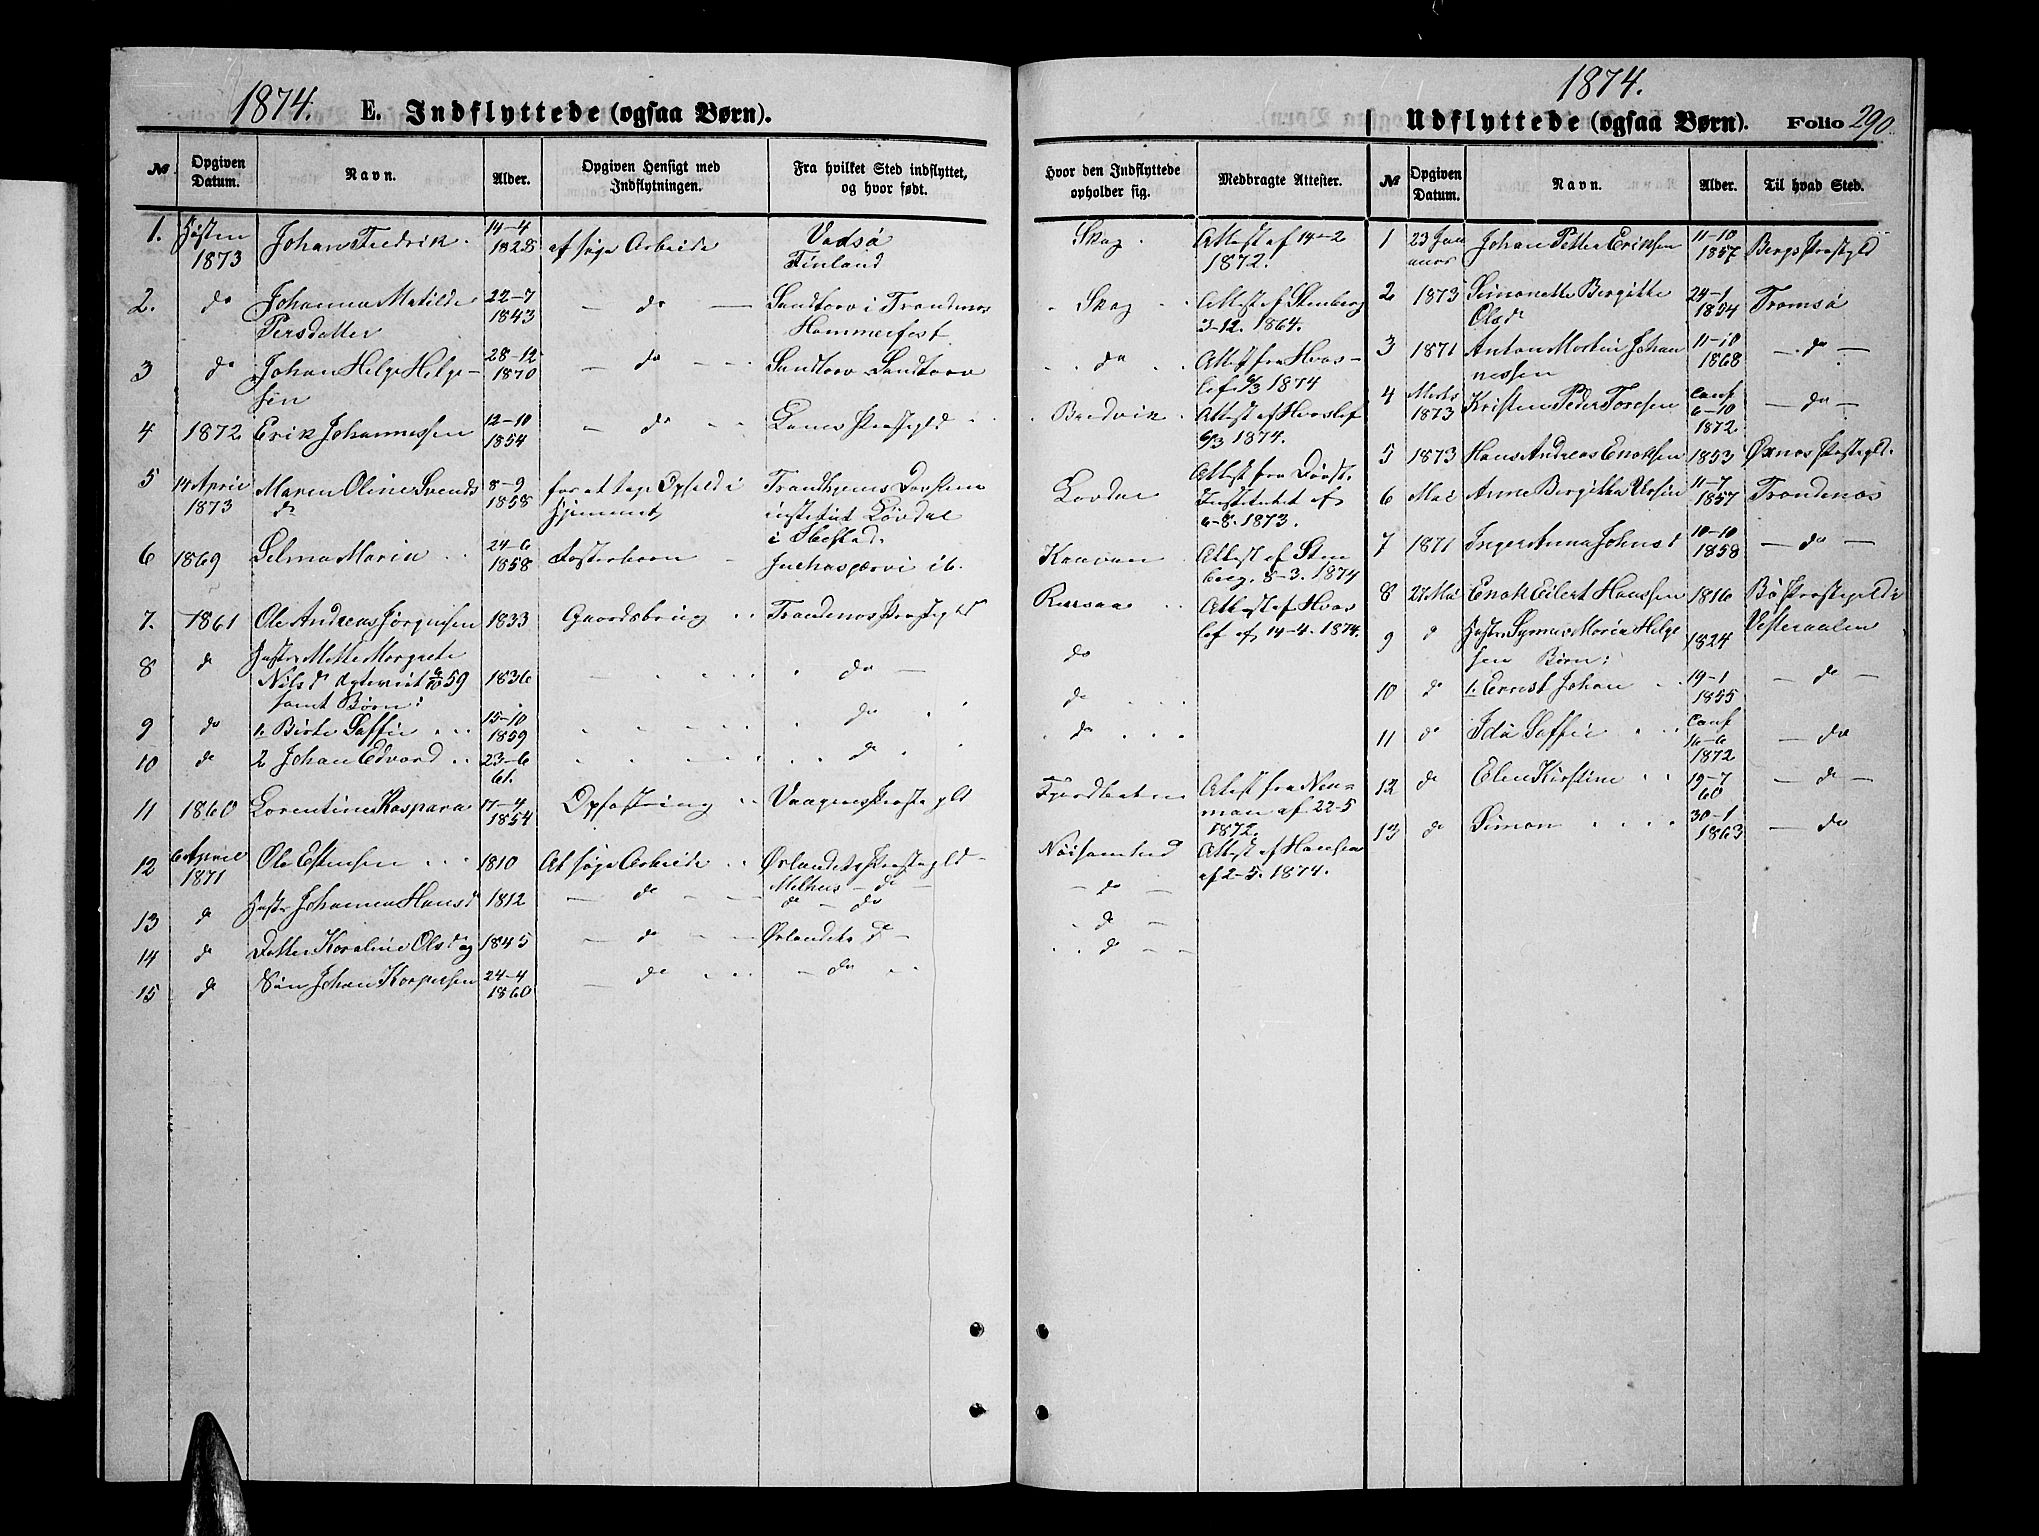 1874. E. Indflyttede (ogsaa Børn).
№ Opgiven Datum. Navn. Alder. Opgiven Hensigt med Indflytningen. Fra hvilket Sted indflyttet, og hvor født. Hvor den Indflyttede opholder sig. Medbragte Attester.
1. Høsten 1873 Johan Fredrik 14-4 1828 at søge Arbeide Vadsø Finland Skog Attest af 14-2 1872.
2. do Johanna Matilde Persdatter 22-7 1843 do Sandtorv i Trondenes Hammerfest Skog Attest af Stenberg 1864.
3 do Johan Helge Helgesen 28-12 1870 do Sandtorv Sandtorv do Attest fra Hvoslef 1874
4 1872 Erik Johannessen 12-10 1854 do Præstegld Attest af Hvoslef 6/3 1874.
5 14 April 1873 Maren Oline Svendsd 8-9 1858 for at tage Ophold i Hjemmet Trondhjems Døvstumeinstitut Løvdal i Ibestad. Løvdal Attest fra Døvst. Institutet af 6-8. 1873.
6 1869 Selma Maria 24-6 1858 Fosterbarn Juchasjærvi Attest af Stenberg. 8-3. 1874
7. 1861 Ole Andreas Jørgensen 1833 Gaardsbrug Trondenes Præstegld Attest af Hvoslef af 14-4. 1874.
8 do Hustr. Mette Margrete Nilsd. 59 samt Børn: 1836 do do
9 do 1. Birte Soffie 15-10 1859 do do
10 do 2 Johan Edvard 23-6 61. do do
11 1860 Lorentine Kaspara 17-4 1854 Opfostring Vaagens Præstegld Attest fra Neuman af 22-5 1872.
12 6 April 1871 Ole Estensen 1810 At søge Arbeide Ørlandets Præstegld Attest af Hansen af 2-5. 1874.
13 do Hustr. Johanna Hansd 1812 do Melhus do do
14 do Datter Karoline Olsd og 1845 do Ørlandets do do
15 do Søn Johan Kaspersen 24-4 1860 do do do
1874.
Udflyttede (ogsaa Børn). Folio 290.
№ Opgiven Datum. Navn. Alder. Til hvad Sted.
1 23 Januar Johan Petter Eriksen 11-10 1857 Bergs Præstegld
2 1873 Simonette Bergitte Olsd 24-1 1854 Tromsø
3 1871 Anton Martin Johannessen 11-10 1868 do
4 Marts 1873 Kristen Peder Toresen Conf 6-10 1872 do
5 1873 Hans Andreas Enoksen 1853 Øxnes Præstegld.
6 Mai Anne Bergitha 11-7 1857 Trondenes
7 1871 Inger Anna Johnsd 10-10 1858 do
8 27 Mai Enok Eilert Hanssen 1816 Bø Præstegjeld i Vesteraalen
9 do Hustr. Maria Helgesen Børn: 1824
10 do 1. Ernst Johan 19-1 1855 do
11 do Ida Soffie Conf 16-6 1872 do
12 do Elen Kirstine 19-7 60 do
13 do Simon 30-1 1863 do